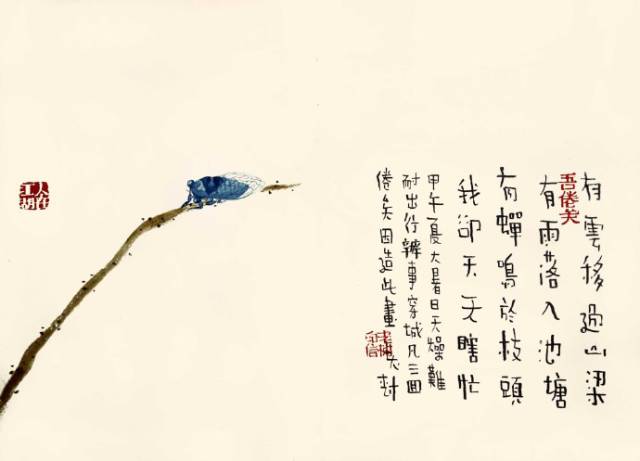 有雲移過山梁
有雨落入池塘
有蟬鳴於枝頭
我卻天天瞎忙
甲午夏大暑日天燥難
耐出行辦事穿城凡三回
倦矣因造此畫
吾倦
人在江湖